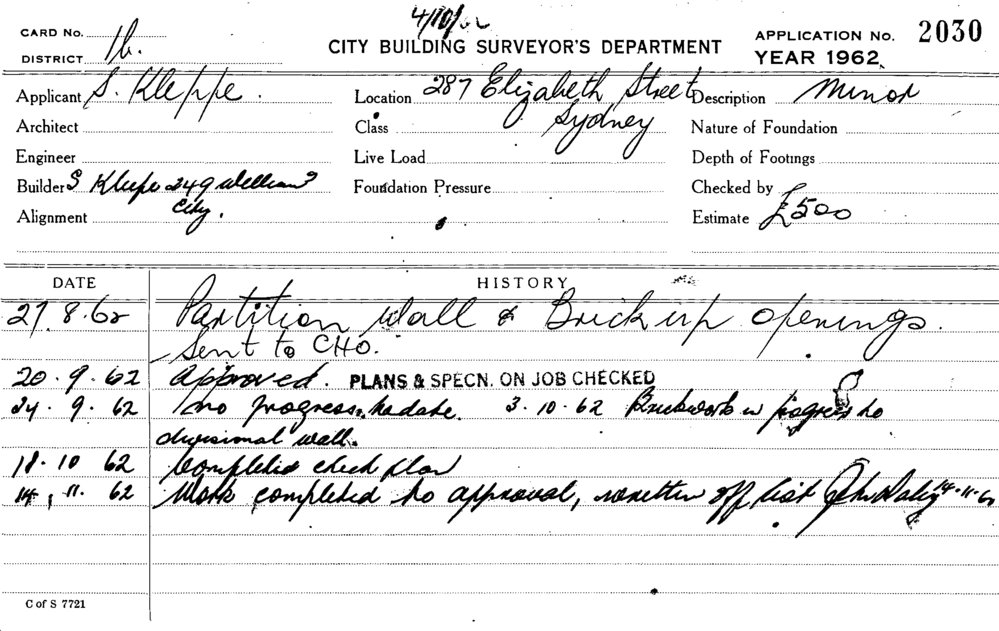 4/10/62
CARD No.
DISTRICT 1b.
CITY BUILDING SURVEYOR'S DEPARTMENT
APPLICATION No. 2030
YEAR 1962
Applicant S. Kleppe.
Location 287 Elizabeth Street Sydney
Description Minor
Architect
Class
Nature of Foundation
Engineer
Live Load
Depth of Footings
Builder S Kleppe 249 William St City.
Foundation Pressure
Checked by
Alignment
Estimate £500
DATE HISTORY
27.8.62 Partition Wall & Brick up openings.
Sent to CHO.
20.9.62 Approved. PLANS & SPECN. ON JOB CHECKED
24.9.62 no progress to date. 3.10.62 Brickwork in progress to
divisional wall.
18.10 62 Completed check plan
14.11.62 Work completed to approval, written off list 14.11.62
C of S 7721